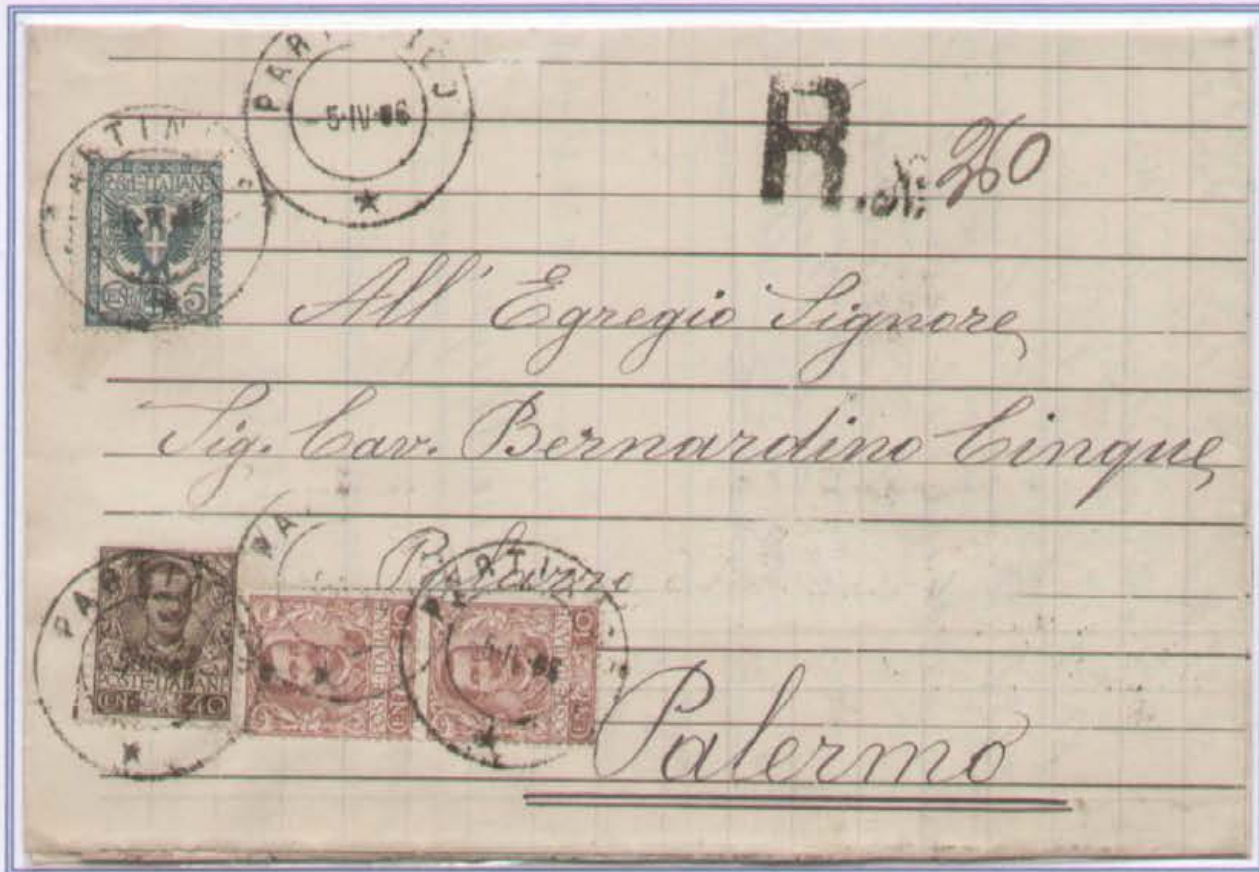 PARTINICO
5·IV·06
R. N. 260
POSTE ITALIANE
CENT. 5
All' Egregio Signore
Sig. Cav. Bernardino Cinque
Palazzo
PARTI
POSTE·ITALIANE
CEN· 40
10
Palermo